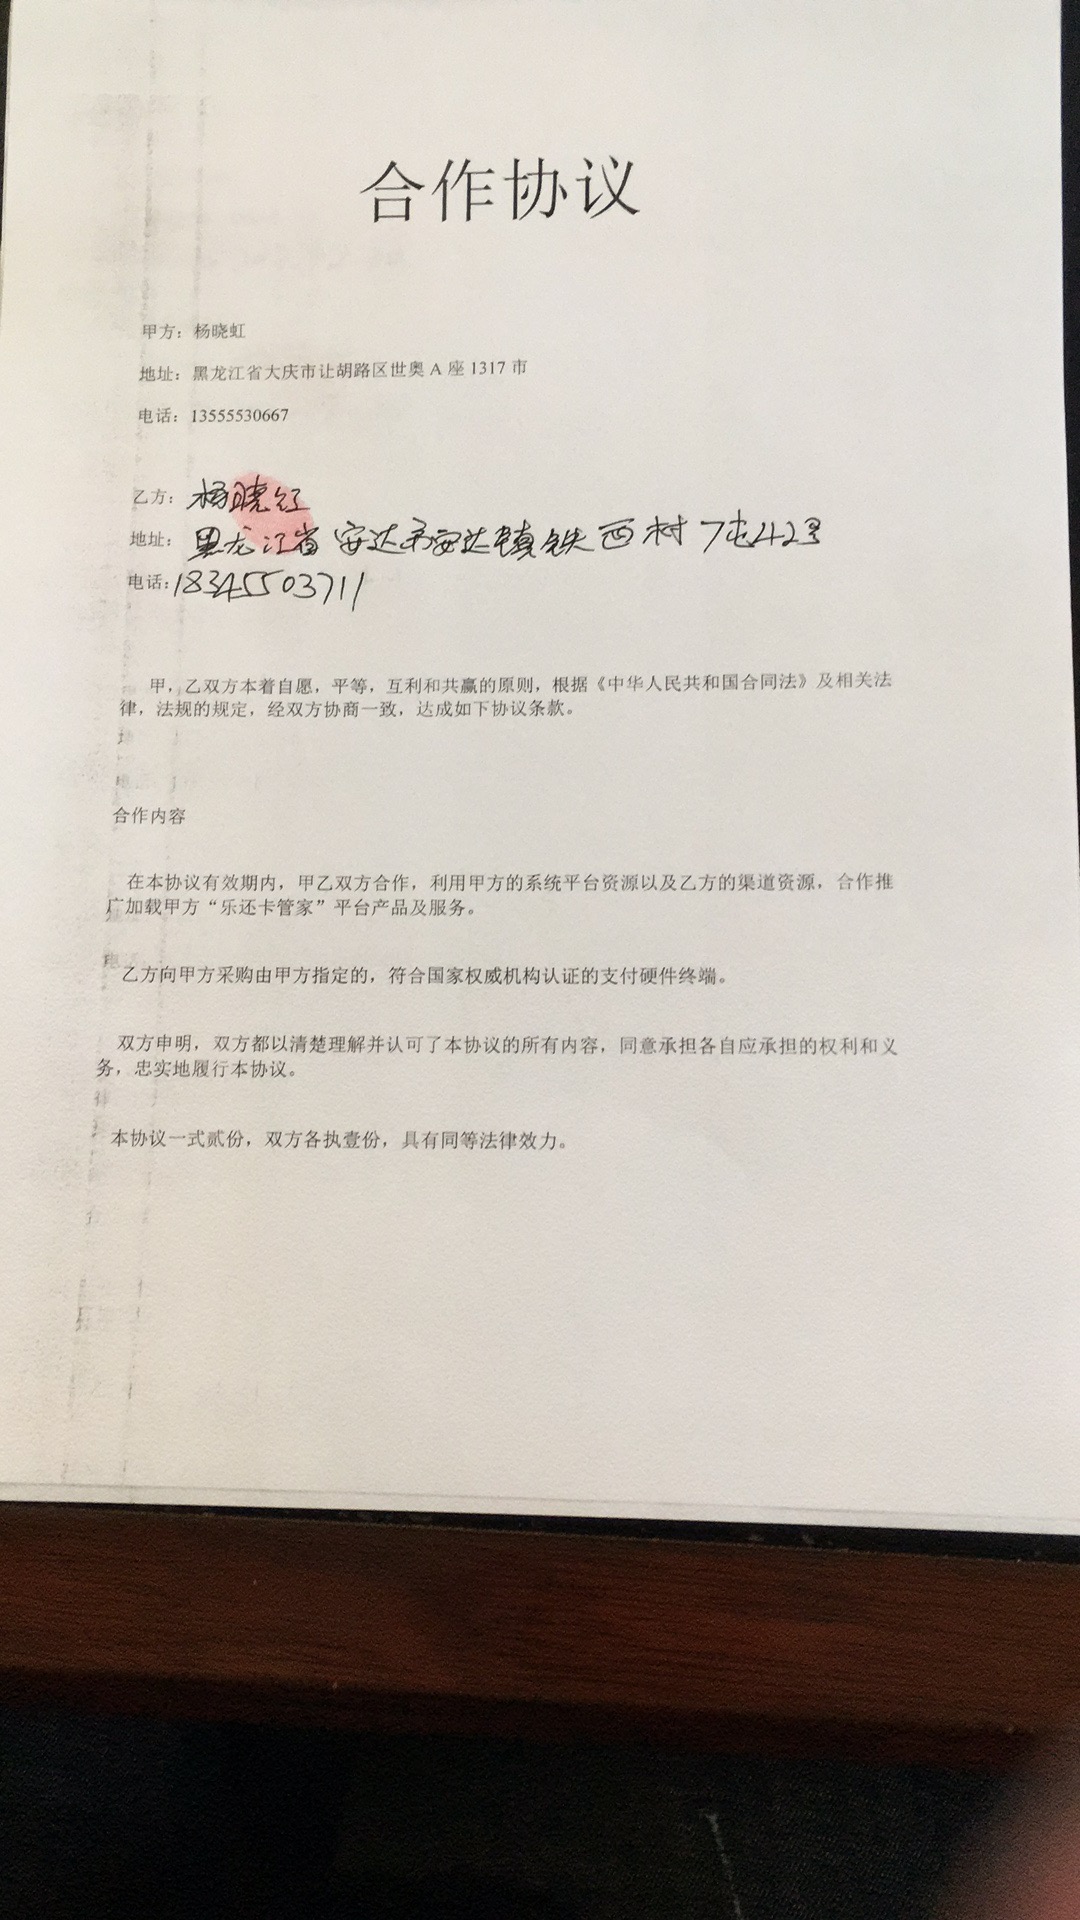 合作协议
甲方：杨晓虹
地址：黑龙江省大庆市让胡路区世奥 A 座 1317 市
电话：13555530667
乙方：杨晓红
地址：黑龙江省安达市安达镇铁西村7屯42号
电话：18345503711
甲，乙双方本着自愿，平等，互利和共赢的原则，根据《中华人民共和国合同法》及相关法
律，法规的规定，经双方协商一致，达成如下协议条款。
合作内容
在本协议有效期内，甲乙双方合作，利用甲方的系统平台资源以及乙方的渠道资源，合作推
广加载甲方“乐还卡管家”平台产品及服务。
乙方向甲方采购由甲方指定的，符合国家权威机构认证的支付硬件终端。
双方申明，双方都以清楚理解并认可了本协议的所有内容，同意承担各自应承担的权利和义
务，忠实地履行本协议。
本协议一式贰份，双方各执壹份，具有同等法律效力。